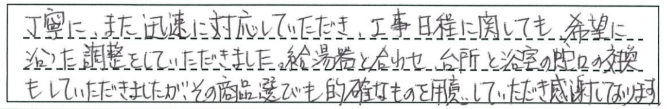 丁寧に、また迅速に対応していただき、工事日程に関しても、希望に
沿った調整をしていただきました。給湯器と合わせ、台所と浴室の蛇口の交換
もしていただきましたが、その商品選びも的確なものを用意していただき感謝しております